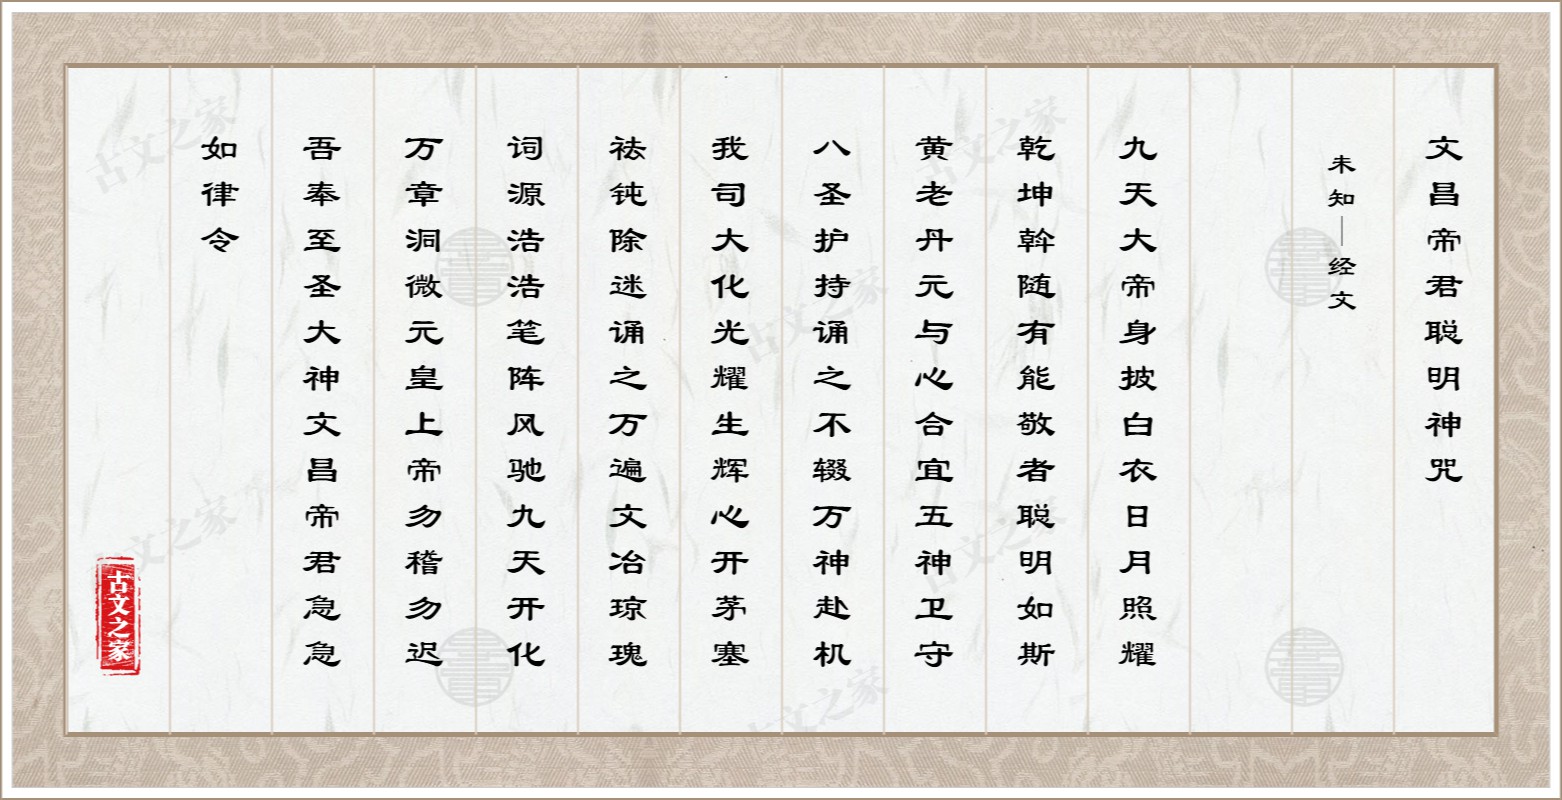 文昌帝君聪明神咒
未知—经文
九天大帝身披白衣日月照耀
乾坤斡随有能敬者聪明如斯
黄老丹元与心合宜五神卫守
八圣护持诵之不辍万神赴机
我司大化光耀生辉心开茅塞
祛钝除迷诵之万遍文冶琼瑰
词源浩浩笔阵风驰九天开化
万章洞微元皇上帝勿稽勿迟
吾奉至圣大神文昌帝君急急
如律令
古文之家